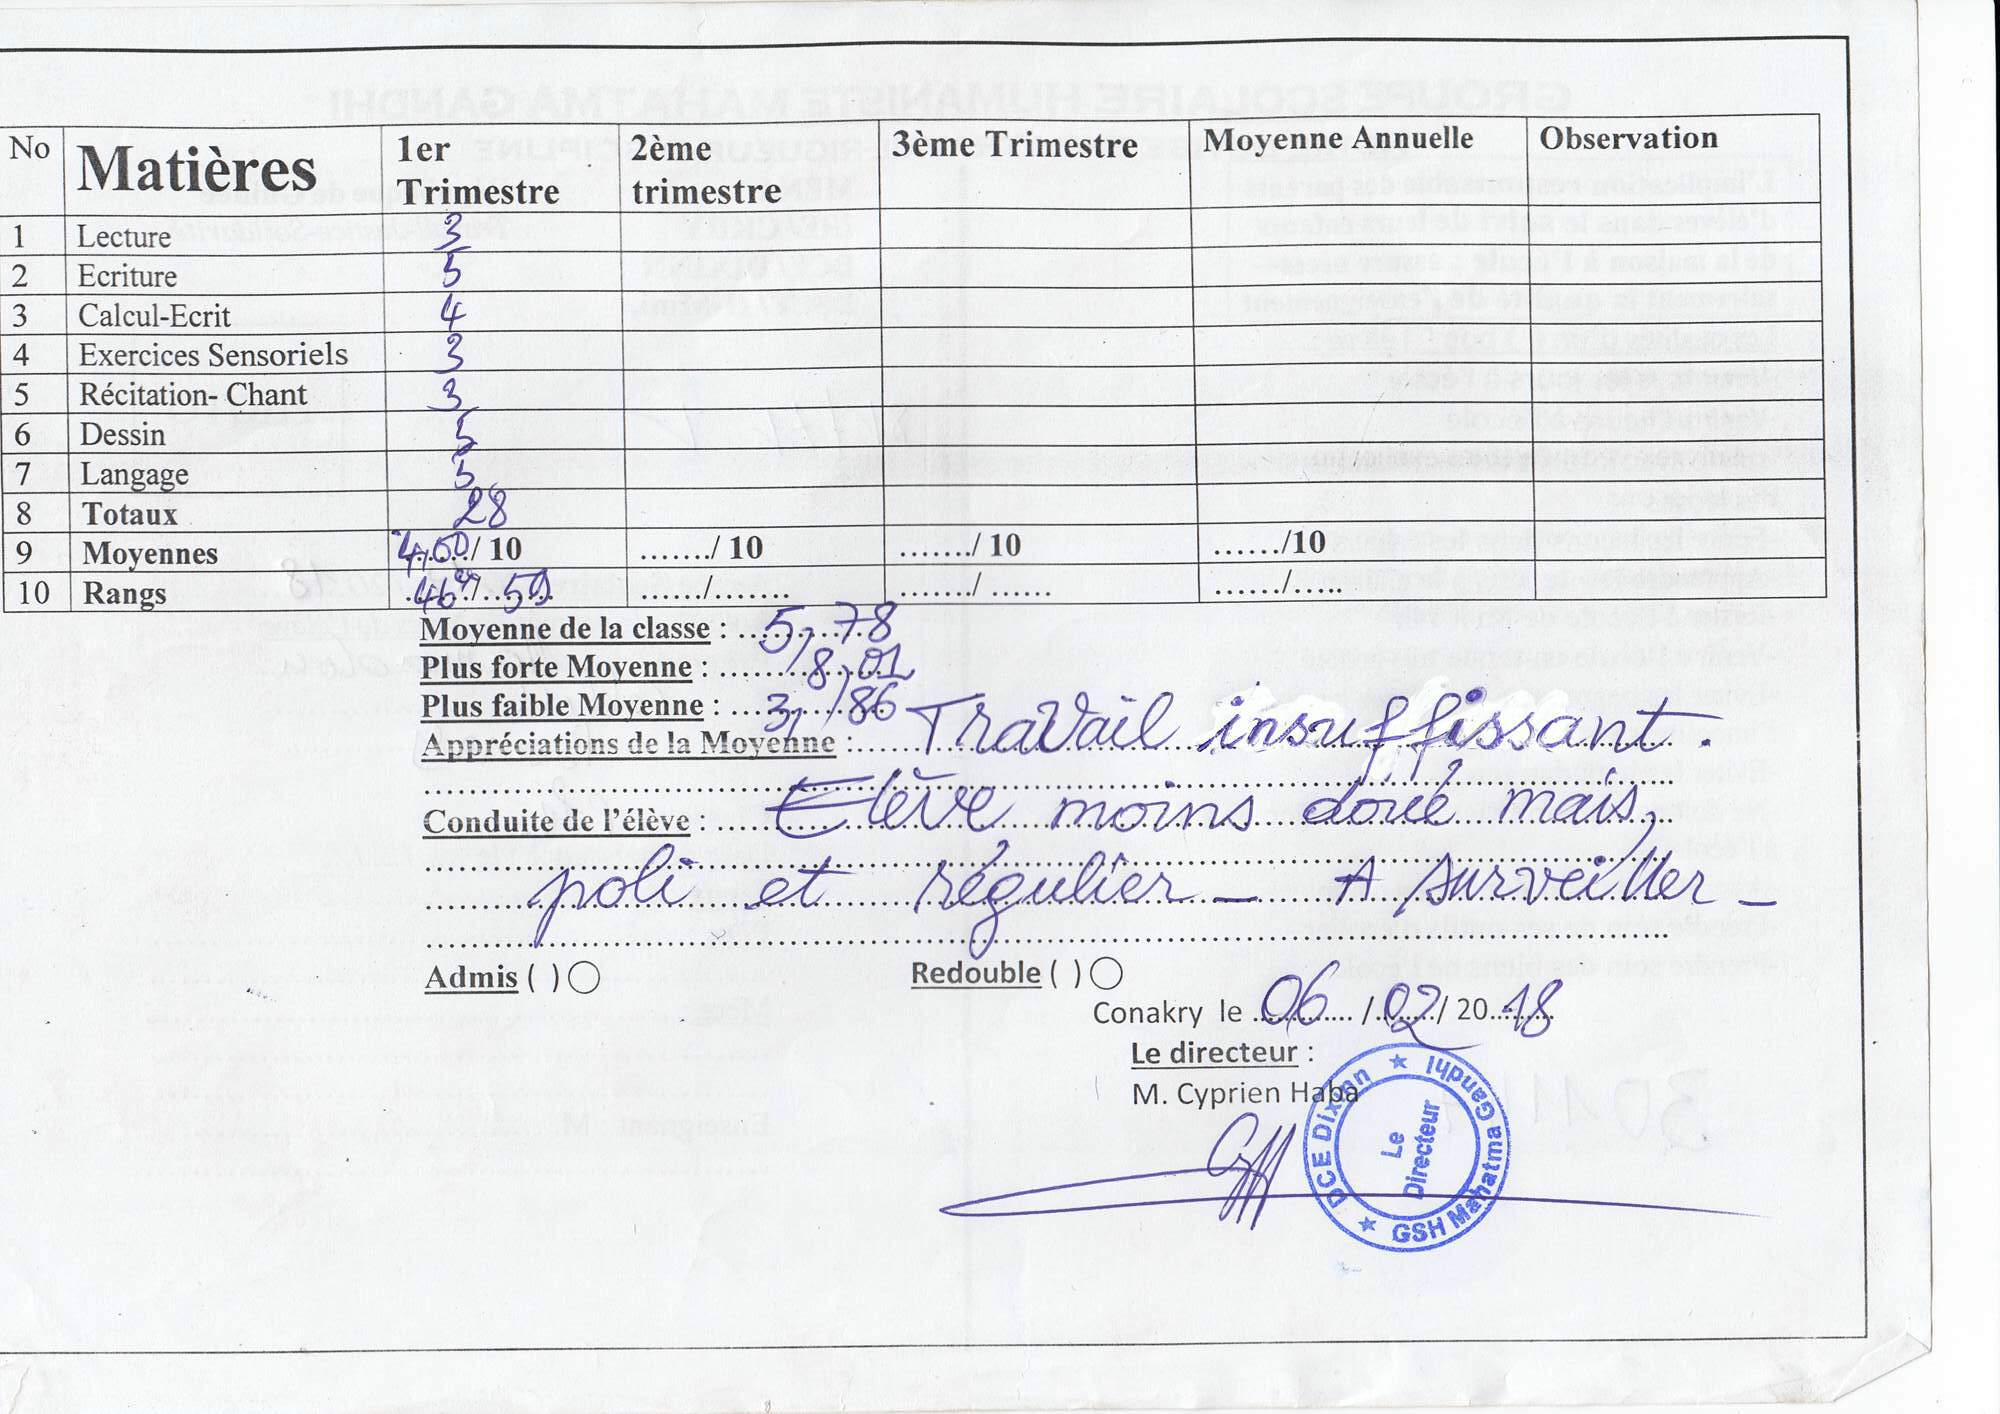 No Matières 1er Trimestre 2ème trimestre 3ème Trimestre Moyenne Annuelle Observation
1 Lecture 3
2 Ecriture 5
3 Calcul-Ecrit 4
4 Exercices Sensoriels 3
5 Récitation- Chant 3
6 Dessin 5
7 Langage 5
8 Totaux 28
9 Moyennes 4,00/ 10 ......./ 10 ......./ 10 ....../10
10 Rangs 46e/ 59 ....../....... ......./ ...... ....../.....
Moyenne de la classe : 5,78
Plus forte Moyenne : 8,01
Plus faible Moyenne : 3,86
Appréciations de la Moyenne : Travail insuffissant.
Conduite de l'élève : Elève moins doué mais,
poli et régulier _ A surveiller _
Admis ( ) Redouble ( )
Conakry le 06 / 02 / 2018
Le directeur :
M. Cyprien Haba
DCE Dixinn ★ GSH Mahatma Gandhi ★
Le Directeur